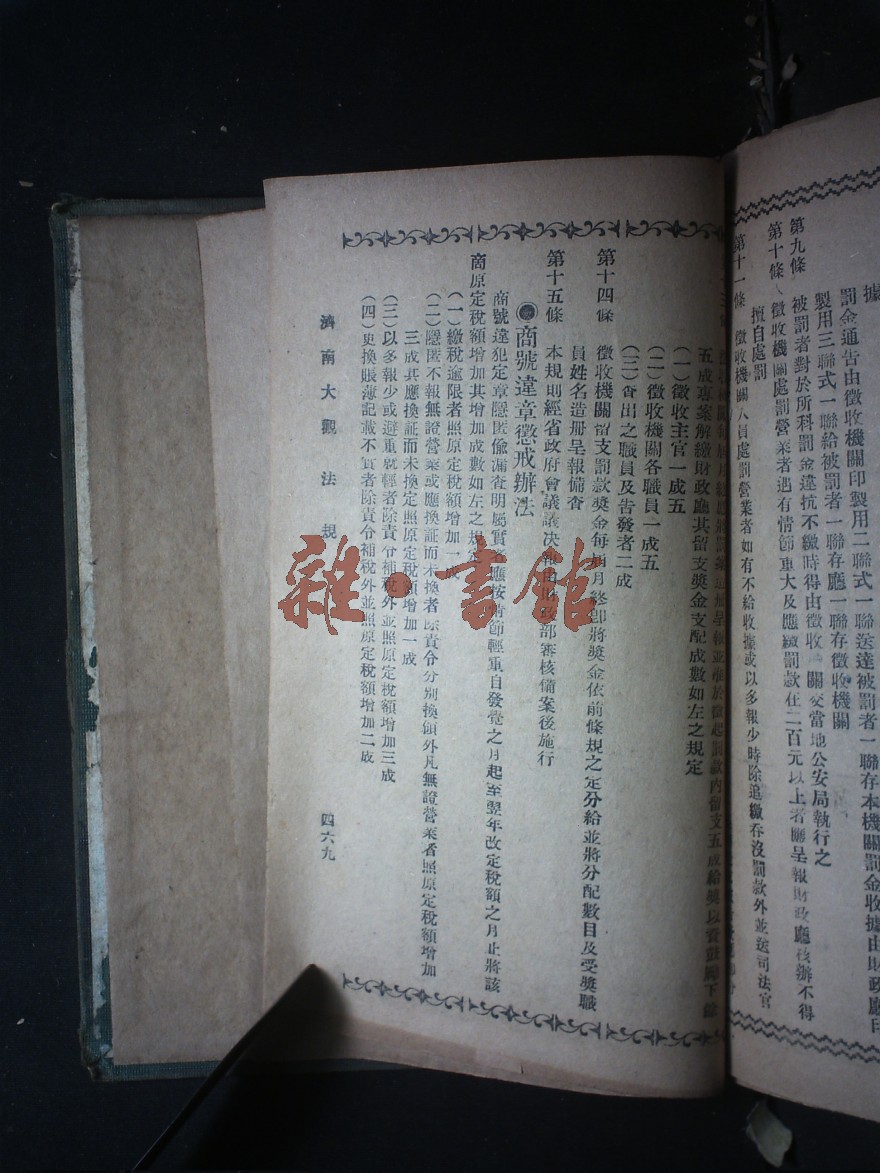 據
罰金通告由徵收機關印製用二聯一聯送達被罰者一聯存本機關罰金收據由財政廳印
製用三聯式一聯給被罰者一聯存廳一聯存徵收機關
第九條 被罰者對於所科罰金違抗不繳時得由徵收 關交當地公安局執行之
第十條 徵收機關處罰營業者遇有情節重大及應繳罰款在二百元以上者應呈報財政廳核辦不得
擅自處罰
第十一條 徵收機關人員處罰營業者如有不給收據或以多報少時除追繳吞沒罰款外並送司法官
五成專案解繳財政廳其留支獎金支配成數如左之規定
(一)徵收主官一成五
(二)徵收機關各職員一成五
(三)查出之職員及告發者二成
第十四條 徵收機關留支罰款獎金每屆月終即將獎金依前條規之定分給並將分配數目及受獎職
員姓名造册呈報備查
第十五條 本規則經省政府會議議决 財政部審核備案後施行
◉商號違章懲戒辦法
商號違犯定章隱匿偷漏查明屬實者應按情節輕重自發覺之月起至翌年改定稅額之月止將該
商原定稅額增加其增加成數如左之規定
(一)繳稅逾限者照原定稅額增加一成
(二)隱匿不報無證營業或應換証而未換者除責令分別換領外凡無證營業者照原定稅額增加
三成其應換証而未換定照原定稅額增加一成
(三)以多報少或避重就輕者除責令補稅外並照原定稅額增加三成
(四)更換賬簿記載不實者除責令補稅外並照原定稅額增加二成
濟南大觀 法規
四六九
雜·書館